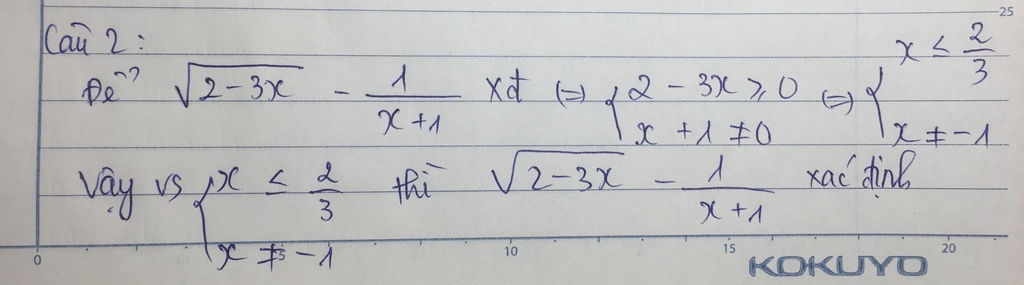 25
Câu 2:
Để √(2-3x) - 1/(x+1) xđ (=) { 2-3x ≥ 0 (=) { x ≤ 2/3
x+1 ≠ 0 x ≠ -1
Vậy vs { x ≤ 2/3 thì √(2-3x) - 1/(x+1) xác định
x ≠ -1
0 5 10 15 20
KOKUYO